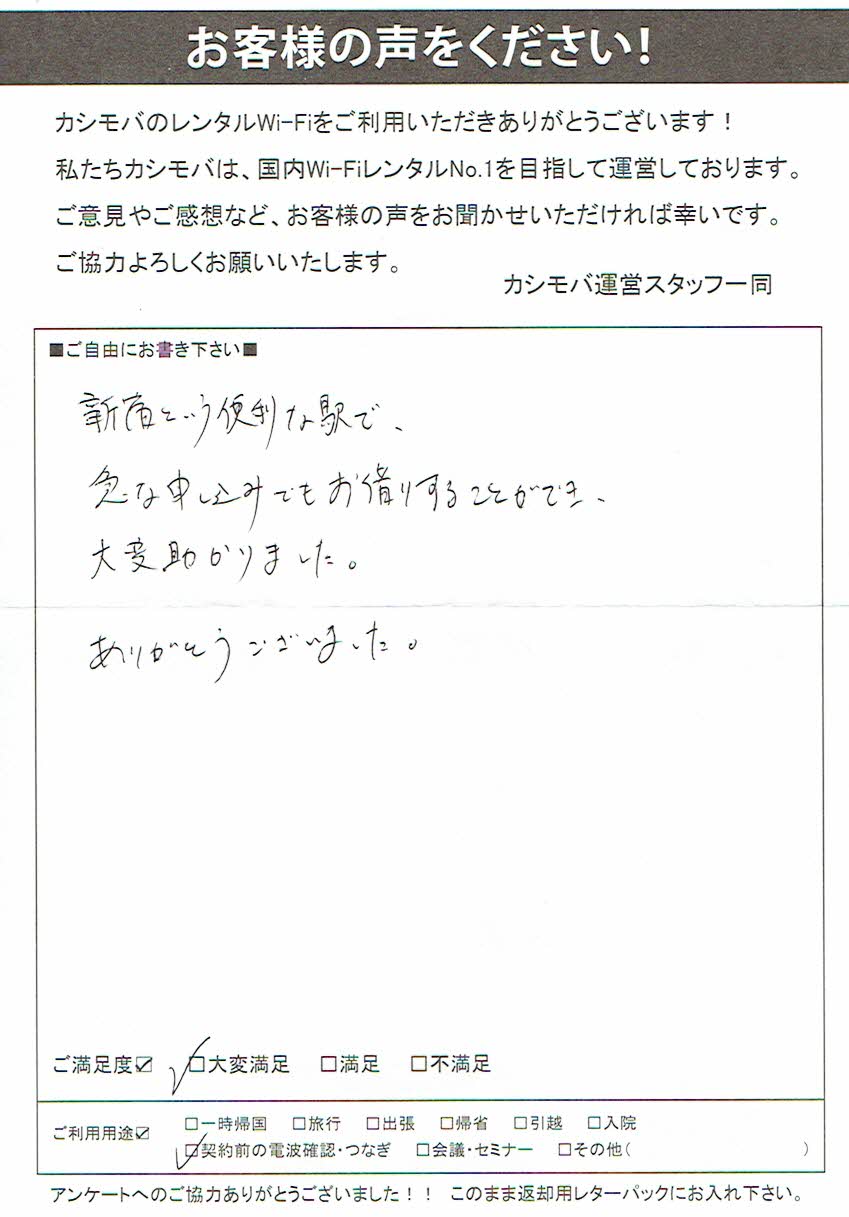 お客様の声をください!
カシモバのレンタルWi-Fiをご利用いただきありがとうございます！
私たちカシモバは、国内Wi-FiレンタルNo.1を目指して運営しております。
ご意見やご感想など、お客様の声をお聞かせいただければ幸いです。
ご協力よろしくお願いいたします。
カシモバ運営スタッフ一同
■ご自由にお書き下さい■
新宿という便利な駅で、
急な申し込みでもお借りすることができ、
大変助かりました。
ありがとうございました。
ご満足度☑ ☑大変満足 □満足 □不満足
ご利用用途☑ □一時帰国 □旅行 □出張 □帰省 □引越 □入院
☑契約前の電波確認・つなぎ □会議・セミナー □その他( )
アンケートへのご協力ありがとうございました！！ このまま返却用レターパックにお入れ下さい。